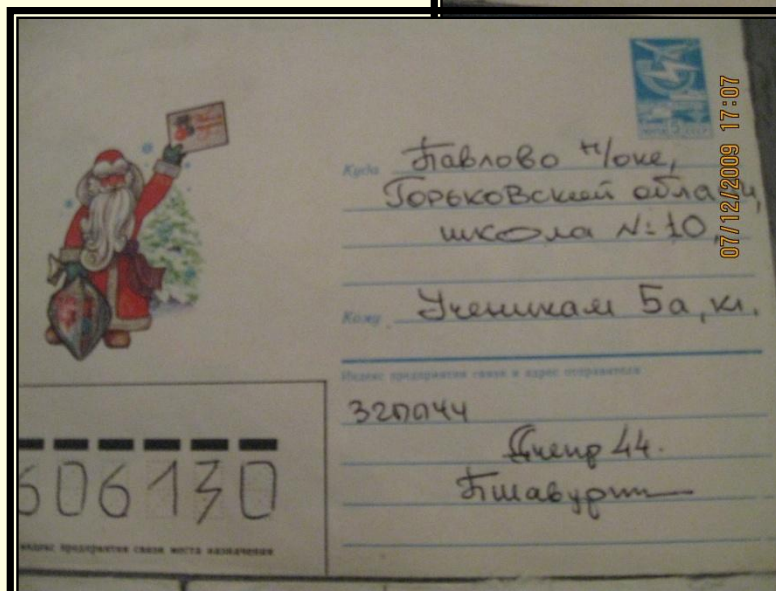 Куда Павлово н/оке,
Горьковской области,
школа №10,
Кому Ученикам 5а, кл.
Индекс предприятия связи и адрес отправителя
320044
Днепр 44.
606130
индекс предприятия связи места назначения
07/12/2009 17:07